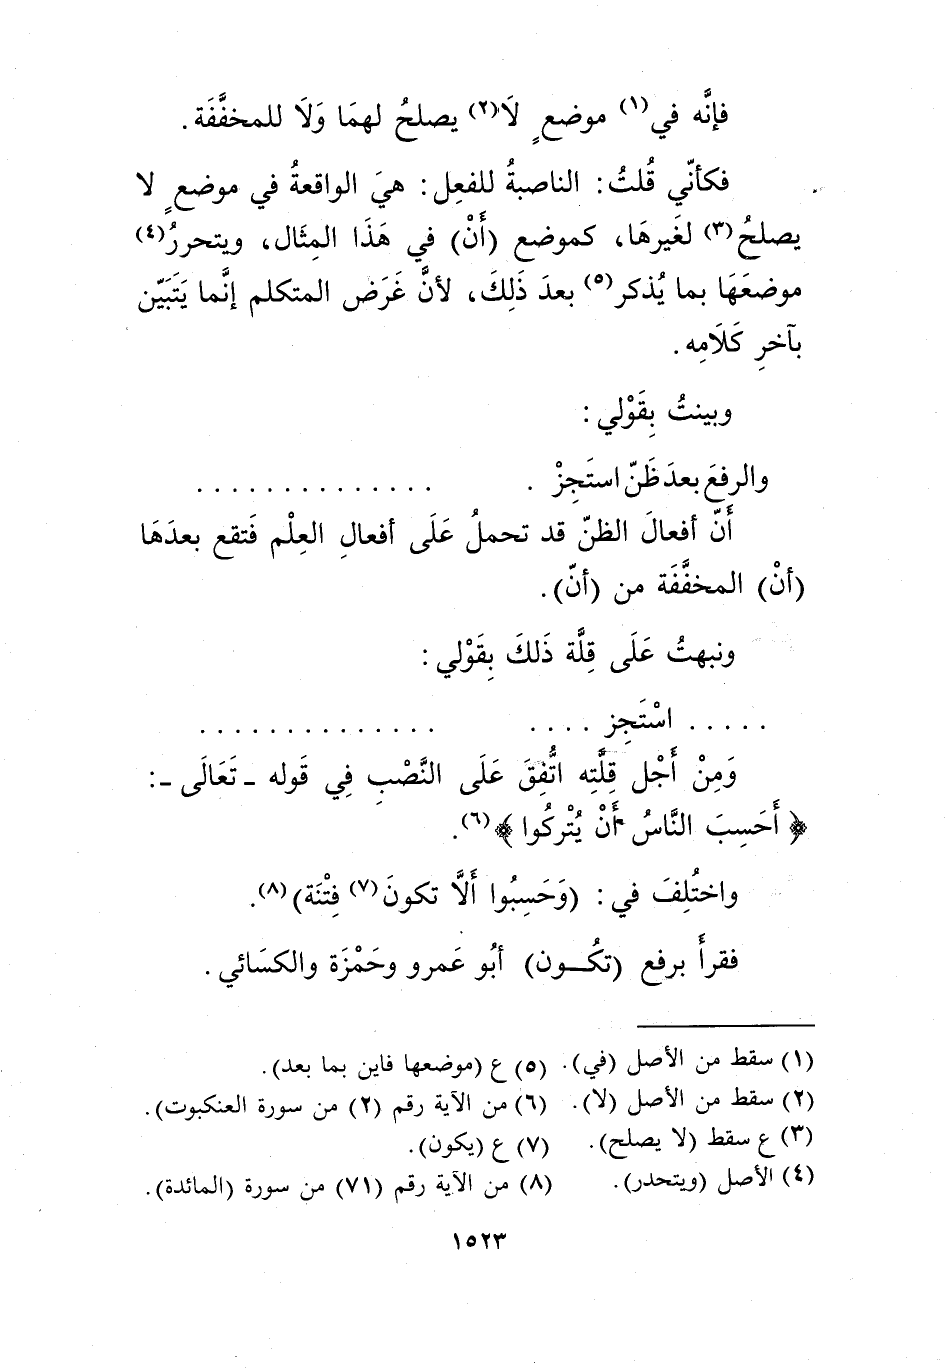 فإنَّه في(١) موضعٍ لَا(٢) يصلحُ لهمَا وَلَا للمخفَّفَة.
فكأنّي قُلتُ: الناصبةُ للفعِل: هيَ الواقعةُ في موضعٍ لا
يصلحُ(٣) لغَيرهَا، كموضع (أَنْ) في هَذَا المِثَال، ويتحررُ(٤)
موضعَهَا بما يُذكر(٥) بعدَ ذَلِكَ، لأنَّ غَرَض المتكلم إنَّما يَتَبَيّن
بآخرِ كَلَامِه.
وبينتُ بِقَوْلي:
والرفعَ بعدَ ظَنّ استَجِزْ . . . . . . . . . . . . . . .
أَنّ أفعالَ الظنّ قد تحملُ عَلَى أفعالِ العِلْم فَتقع بعدَهَا
(أنْ) المخفَّفَة من (أنّ).
ونبهتُ عَلَى قِلَّة ذَلكَ بِقَوْلي:
. . . . . اسْتَجِز . . . . . . . . . . . . . . . . . .
وَمِنْ أَجْل قِلَّتِه اتُّفِقَ عَلَى النَّصْبِ فِي قَوله ـ تَعَالَى ـ:
﴿أَحَسِبَ النَّاسُ أَنْ يُتْركُوا﴾(٦).
واختُلِفَ في: (وَحَسِبُوا أَلَّا تكونَ(٧) فِتْنَة)(٨).
فقرأَ برفع (تكُـــون) أبُو عَمرو وحَمْزَة والكسَائي.
(١) سقط من الأصل (في). (٥) ع (موضعها فاين بما بعد).
(٢) سقط من الأصل (لا). (٦) من الآية رقم (٢) من سورة العنكبوت).
(٣) ع سقط (لا يصلح). (٧) ع (يكون).
(٤) الأصل (ويتحدر). (٨) من الآية رقم (٧١) من سورة (المائدة).
١٥٢٣